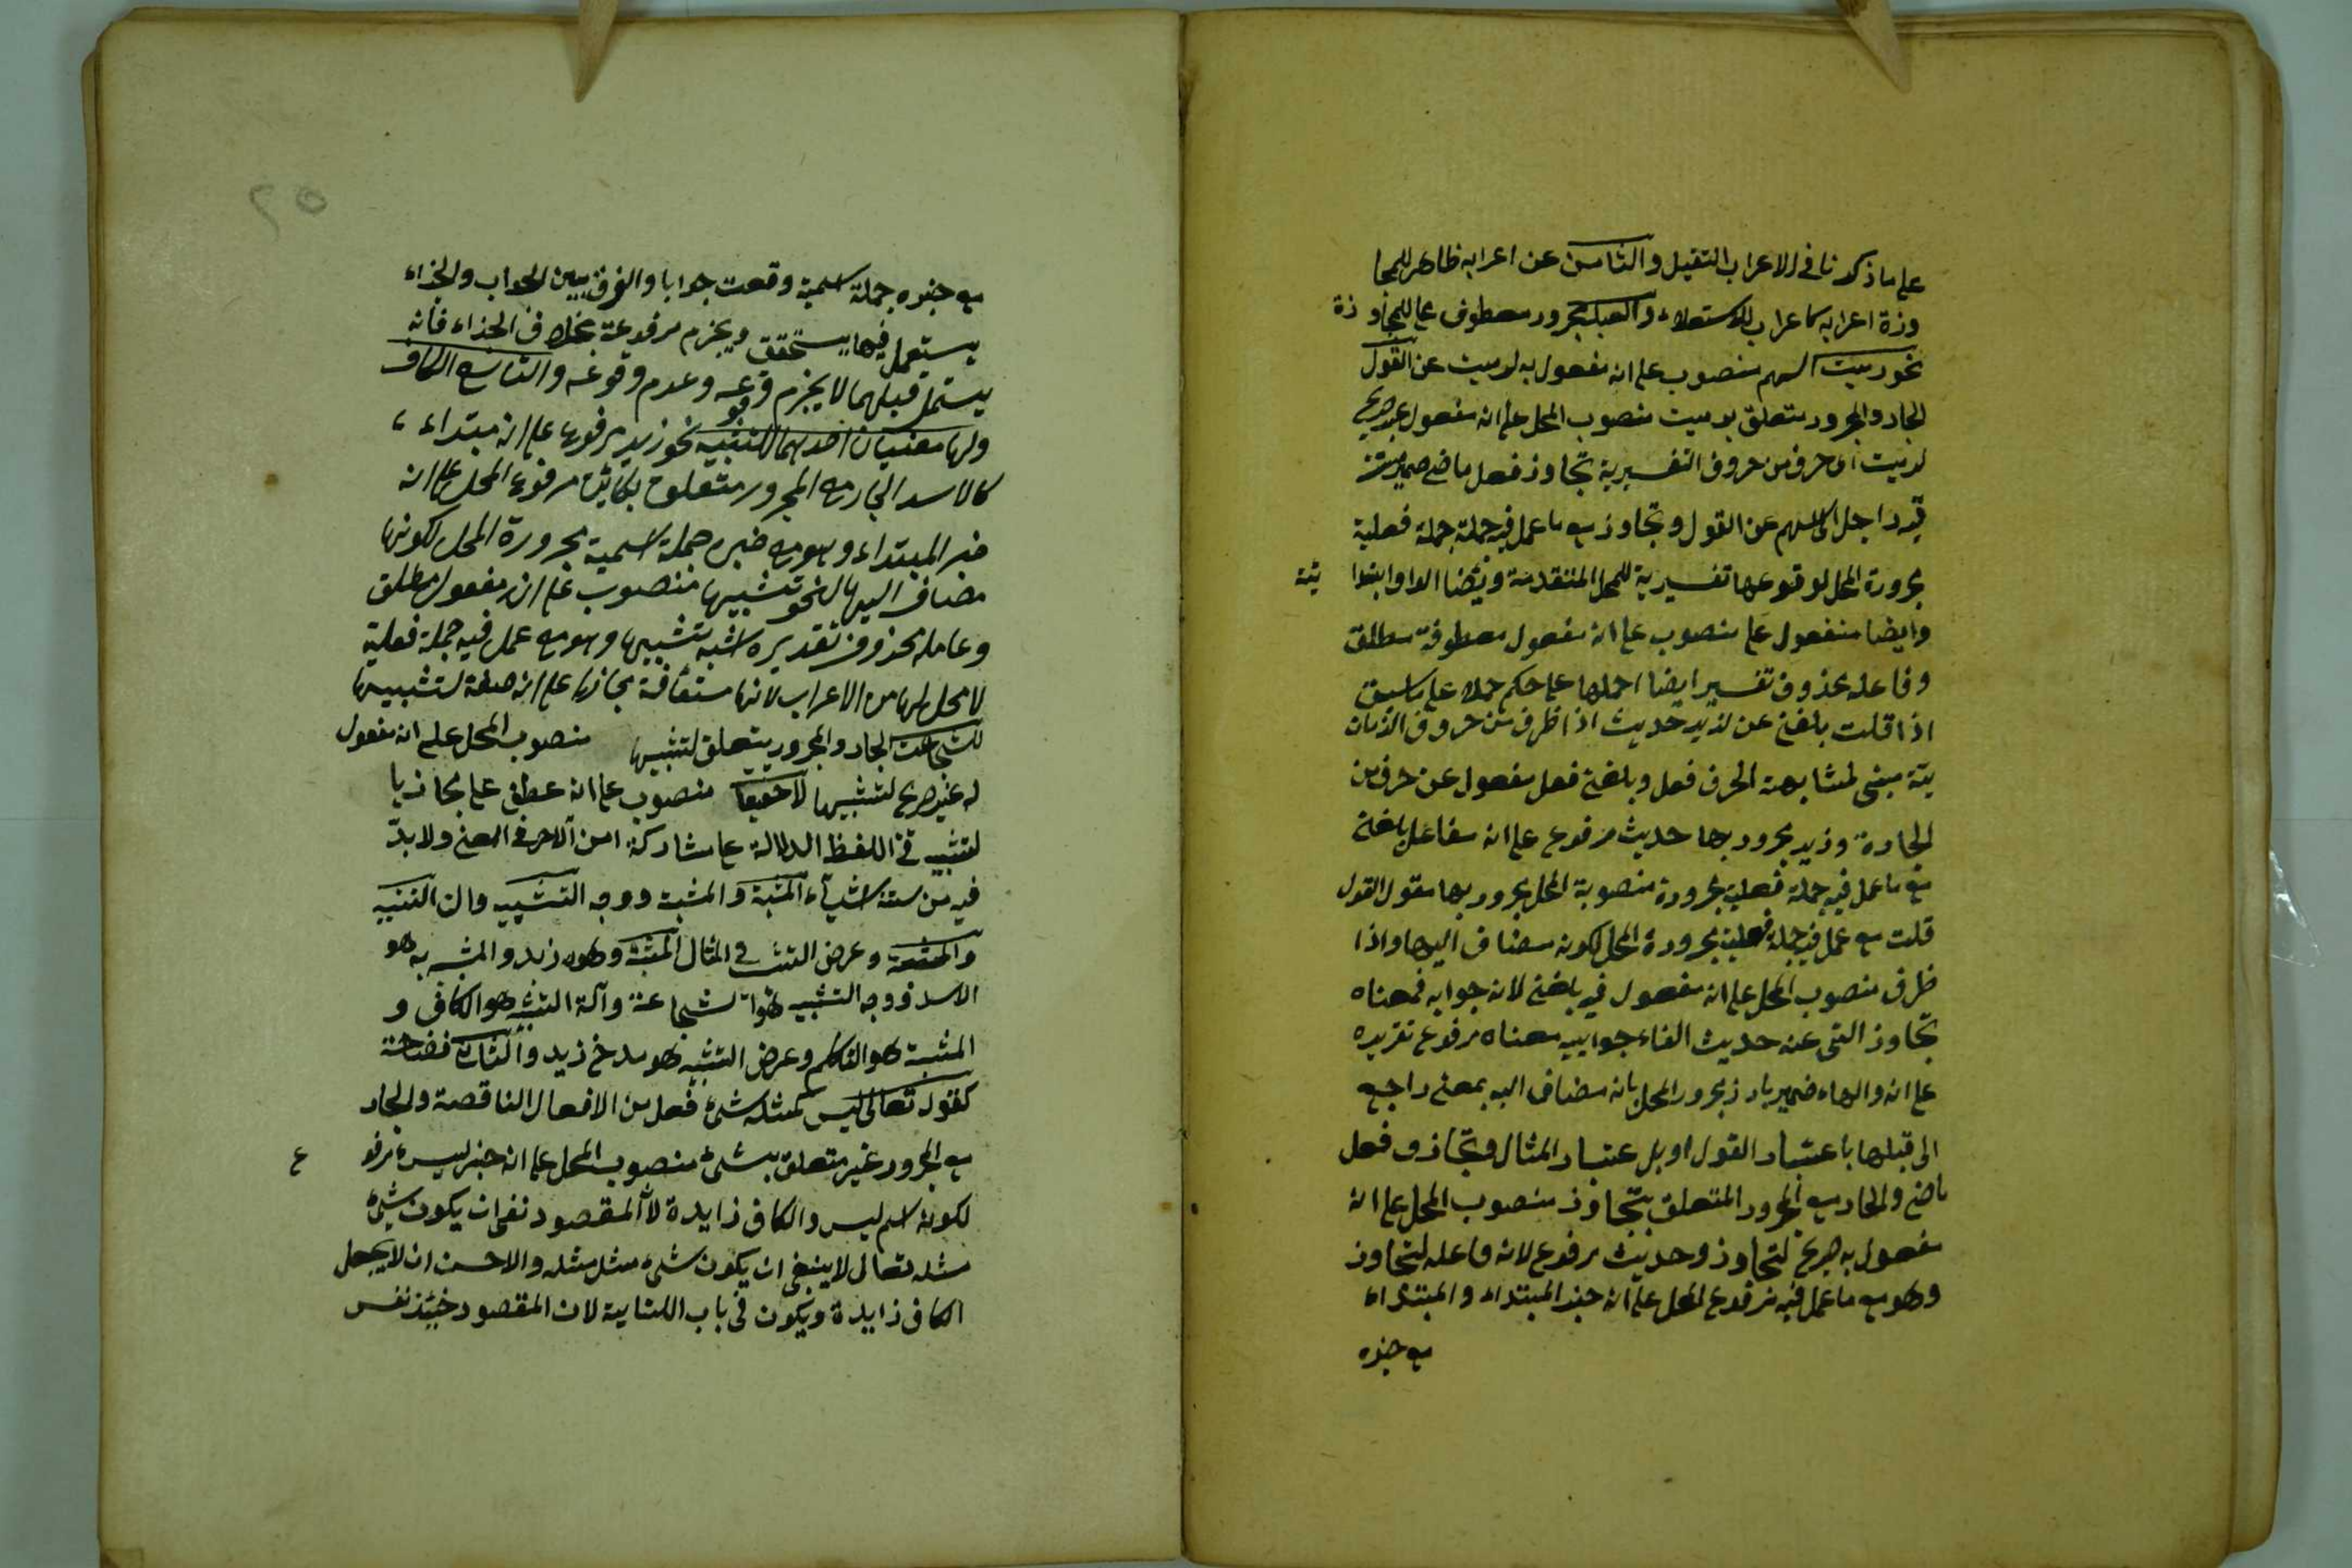 على ما ذكرنا في الاعراب الثقيل والثامن عن اعرابه ظاهر للمجا
وزة اعرابه كاعراب للاستعلاء والبعد مجرور معطوف على للمجاوزة
نحو رميت السهم منصوب على انه مفعول به لرميت عن القول
الجار والمجرور متعلق برميت منصوب المحل على انه مفعول غير صريح
لرميت اى حرف من حروف التفسيرية تجاوز فعل ماضي ضمير مستتر
فيه راجل الى السهم عن القول وتجاوز مع ما عمل فيه جملة جملة فعلية
مجرورة المحل لوقوعها تفسيرية للمحل المتقدمة وايضا الواو ابتدا ئية
وايضا منفعول على منصوب على انه مفعول معطوفة مطلق
وفاعله محذوف تفسير ايضا احملها على حكم حملا على ما سبق
اذا قلت بلغني عن لزيد حديث اذا ظرف من حروف الزمان
ية مبني لمشابهة الحرف فعل وبلغني فعل مفعول عن حرف من
الجارة وزيد مجرور بها حديث مرفوع على انه سفاعل بلغني
مع ما عمل فيه جملة فعلية مجرورة منصوبة المحل مجرور بها مقول القول
قلت مع عمل فيه جملة فعلية مجرورة المحل لكونه مضاف اليها واذا
ظرف منصوب المحل على انه مفعول فيه بلغني لانه جوابه فمعناه
تجاوز التى عنه حديث الفاء جوابيه معناه مرفوع تقريره
على انه والهاء ضمير بارز مجرور المحل بانه مضاف اليه بمعنى راجع
الى قبلها باعتبار القول او بل عتبار المثال وتجاذف فعل
ماضي والجار مع المجرور المتعلق بتجاوز منصوب المحل على انه
مفعول به صريح لتجاوز وحديث مرفوع لانه فاعله لتجاوز
وهو مع ما عمل فيه مرفوع المحل على انه خبر المبتداء والمبتداء
مع خبره
٢٥
مع خبره جملة اسمية وقعت جوابا والفرق بين الجواب والجزاء
يستعمل فيها يستحقق ويجزم مرفوعة بخلاف الجزاء فانه
يستمل قبلهما لا يجزم وقوعه وعدم وقوعه والتاسع الكاف
ولها معنيان احدهما للتشبيه نحو زيد مرفوع على انه مبتداء
كالاسد الجار مع المجرور متعلوق بكائن مرفوع المحل على انه
خبر المبتداء وهو مع خبره جملة اسمية مجرورة المحل لكونها
مضاف اليها لنحو تشبيها منصوب على انه مفعول مطلق
وعامله محذوف تقديره اشبه تشبيها وهو مع عمل فيه جملة فعلية
لا محل لها من الاعراب لانها مستأنفة مجازيا على انه صفة لتشبيها
للشجاعت الجار والمجرور يتعلق لتشبيها منصوب المحل على انه مفعول
له غير صريح لتشبيها لا حقيقا منصوب على انه عطف على مجازيا
لتشبيه في اللفظ الدلالة على مشاركة امن آلاخر في المعنى ولا بدّ
فيه من ستة اشياء المشبه والمشبه ووجه التشبيه وان التشبيه
والمشبه وعرض التشبيه في المثال المشبه وهو زيد والمشبه به هو
الاسد ووجه التشبيه هو الشجاعة وآلة التشبيه هو الكاف و
المشبه هو المتكلم وعرض التشبيه هو مدخ زيد والثانى
كقوله تعالى ليس كمثله شئ فعل من الافعال الناقصة والجار
مع المجرور غير متعلق بشئ منصوب المحل على انه خبر ليس مرفوع
لكونه اسم ليس والكاف زايدة لأ المقصود نفى ان يكون شئ
مثله تعالى لا ينبغى ان يكون شئ مثل مثله والاحسن ان لا يجعل
الكاف زايدة ويكون في باب الكناية لان المقصود حينئذ نفس